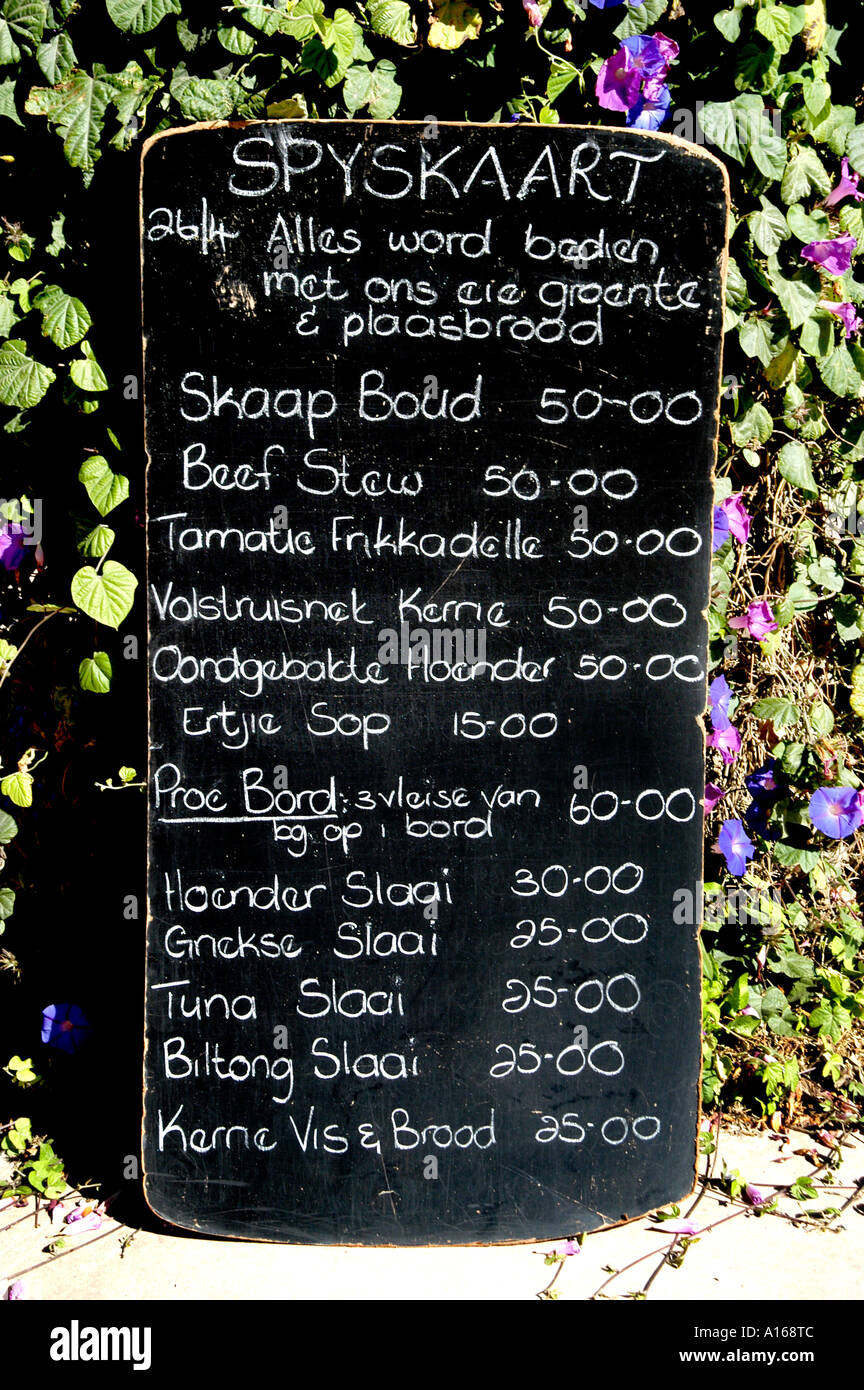 SPYSKAART
26/4 Alles word bedien
met ons eie groente
& plaasbrood
Skaap Boud 50-00
Beef Stew 50-00
Tamatie Frikkadelle 50-00
Volstruisnek Kerrie 50-00
Oondgebakte Hoender 50-00
Ertjie Sop 15-00
Proe Bord: 3 vleise van 60-00
bg. op 1 bord
Hoender Slaai 30-00
Griekse Slaai 25-00
Tuna Slaai 25-00
Biltong Slaai 25-00
Kerrie Vis & Brood 25-00
alamy
Image ID: A168TC
www.alamy.com